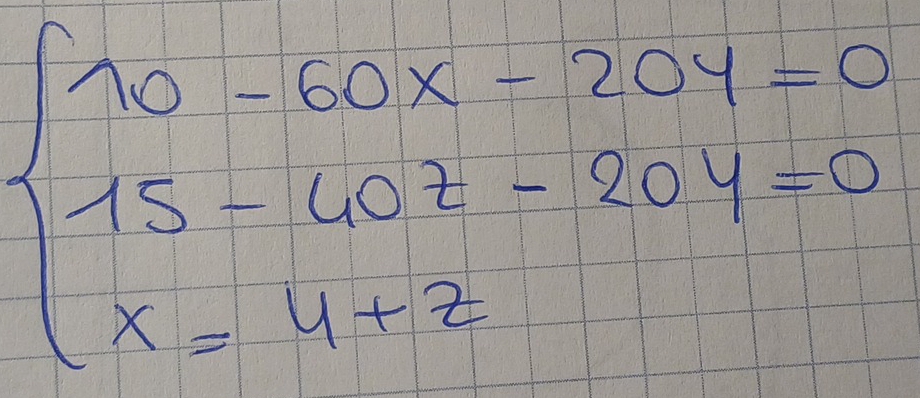 10 - 60x - 20y = 0
15 - 40z - 20y = 0
x = y + z